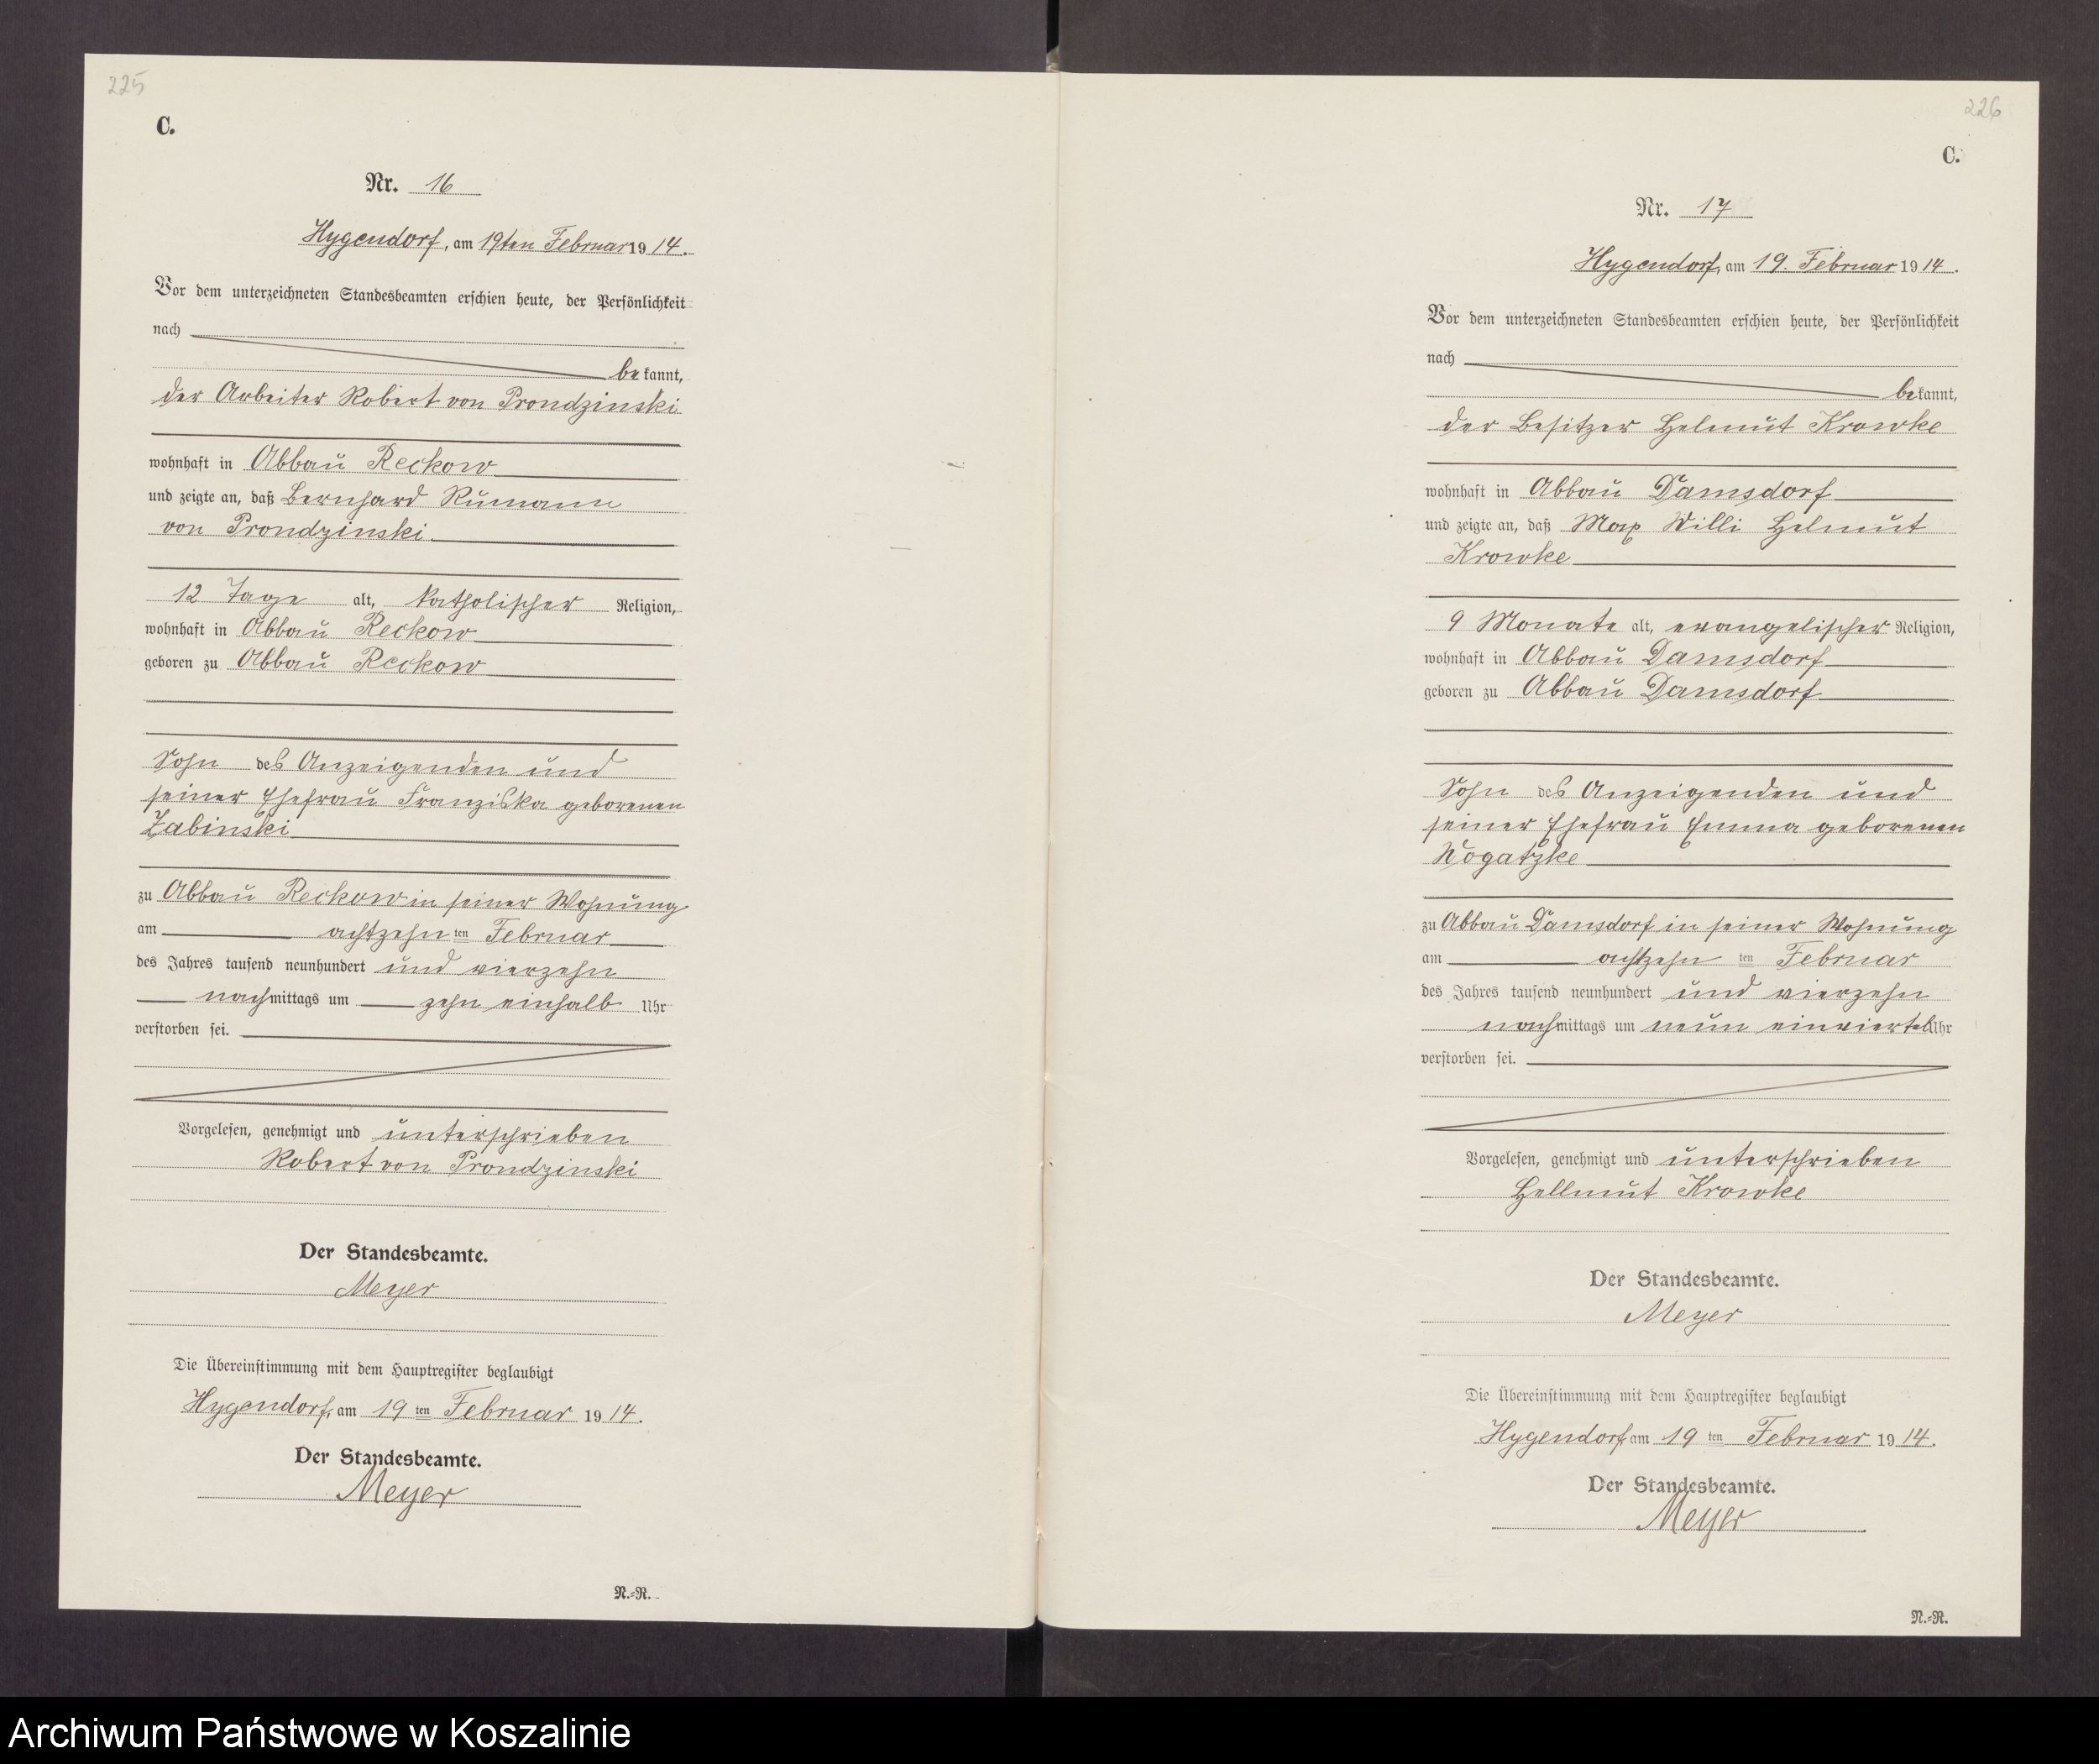 225
C.
Nr. 16
Hygendorf, am 19ten Februar 1914.
Vor dem unterzeichneten Standesbeamten erschien heute, der Persönlichkeit
nach
bekannt,
der Arbeiter Robert von Prondzinski
wohnhaft in Abbau Reckow
und zeigte an, daß Bernhard Rumann
von Prondzinski
12 Tage alt, katholischer Religion,
wohnhaft in Abbau Reckow
geboren zu Abbau Reckow
Sohn des Anzeigenden und
seiner Ehefrau Franziska geborenen
Zabinski
zu Abbau Reckow in seiner Wohnung
am achtzehnten Februar
des Jahres tausend neunhundert und vierzehn
nachmittags um zehn einhalb Uhr
verstorben sei.
Vorgelesen, genehmigt und unterschrieben
Robert von Prondzinski
Der Standesbeamte.
Meyer
Die Übereinstimmung mit dem Hauptregister beglaubigt
Hygendorf, am 19ten Februar 1914.
Der Standesbeamte.
Meyer
N.=R.
226
C.
Nr. 17
Hygendorf, am 19. Februar 1914.
Vor dem unterzeichneten Standesbeamten erschien heute, der Persönlichkeit
nach
bekannt,
der Besitzer Helmut Krowke
wohnhaft in Abbau Damsdorf
und zeigte an, daß Max Willi Helmut
Krowke
9 Monate alt, evangelischer Religion,
wohnhaft in Abbau Damsdorf
geboren zu Abbau Damsdorf
Sohn des Anzeigenden und
seiner Ehefrau Emma geborenen
Wogatzke
zu Abbau Damsdorf in seiner Wohnung
am achtzehnten Februar
des Jahres tausend neunhundert und vierzehn
nachmittags um neun einviertel Uhr
verstorben sei.
Vorgelesen, genehmigt und unterschrieben
Hellmut Krowke
Der Standesbeamte.
Meyer
Die Übereinstimmung mit dem Hauptregister beglaubigt
Hygendorf, am 19ten Februar 1914.
Der Standesbeamte.
Meyer
N.=R.
Archiwum Państwowe w Koszalinie